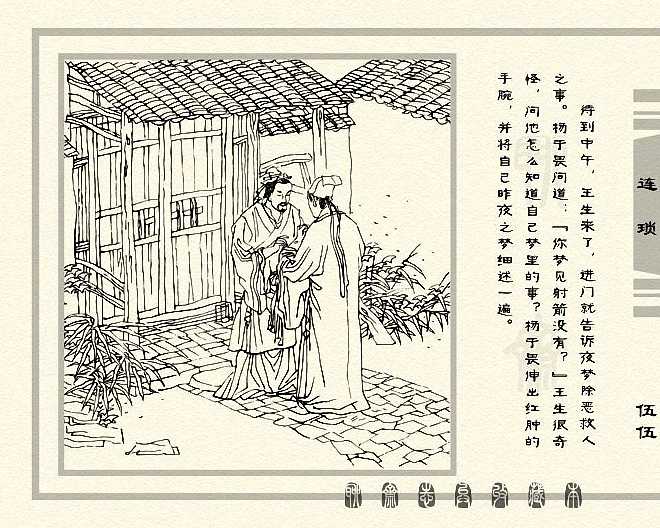 连琐
伍伍
待到中午，王生来了，进门就告诉夜梦除恶救人
之事。杨于畏问道：“你梦见射箭没有？”王生很奇
怪，问他怎么知道自己梦里的事？杨于畏伸出红肿的
手腕，并将自己昨夜之梦细述一遍。